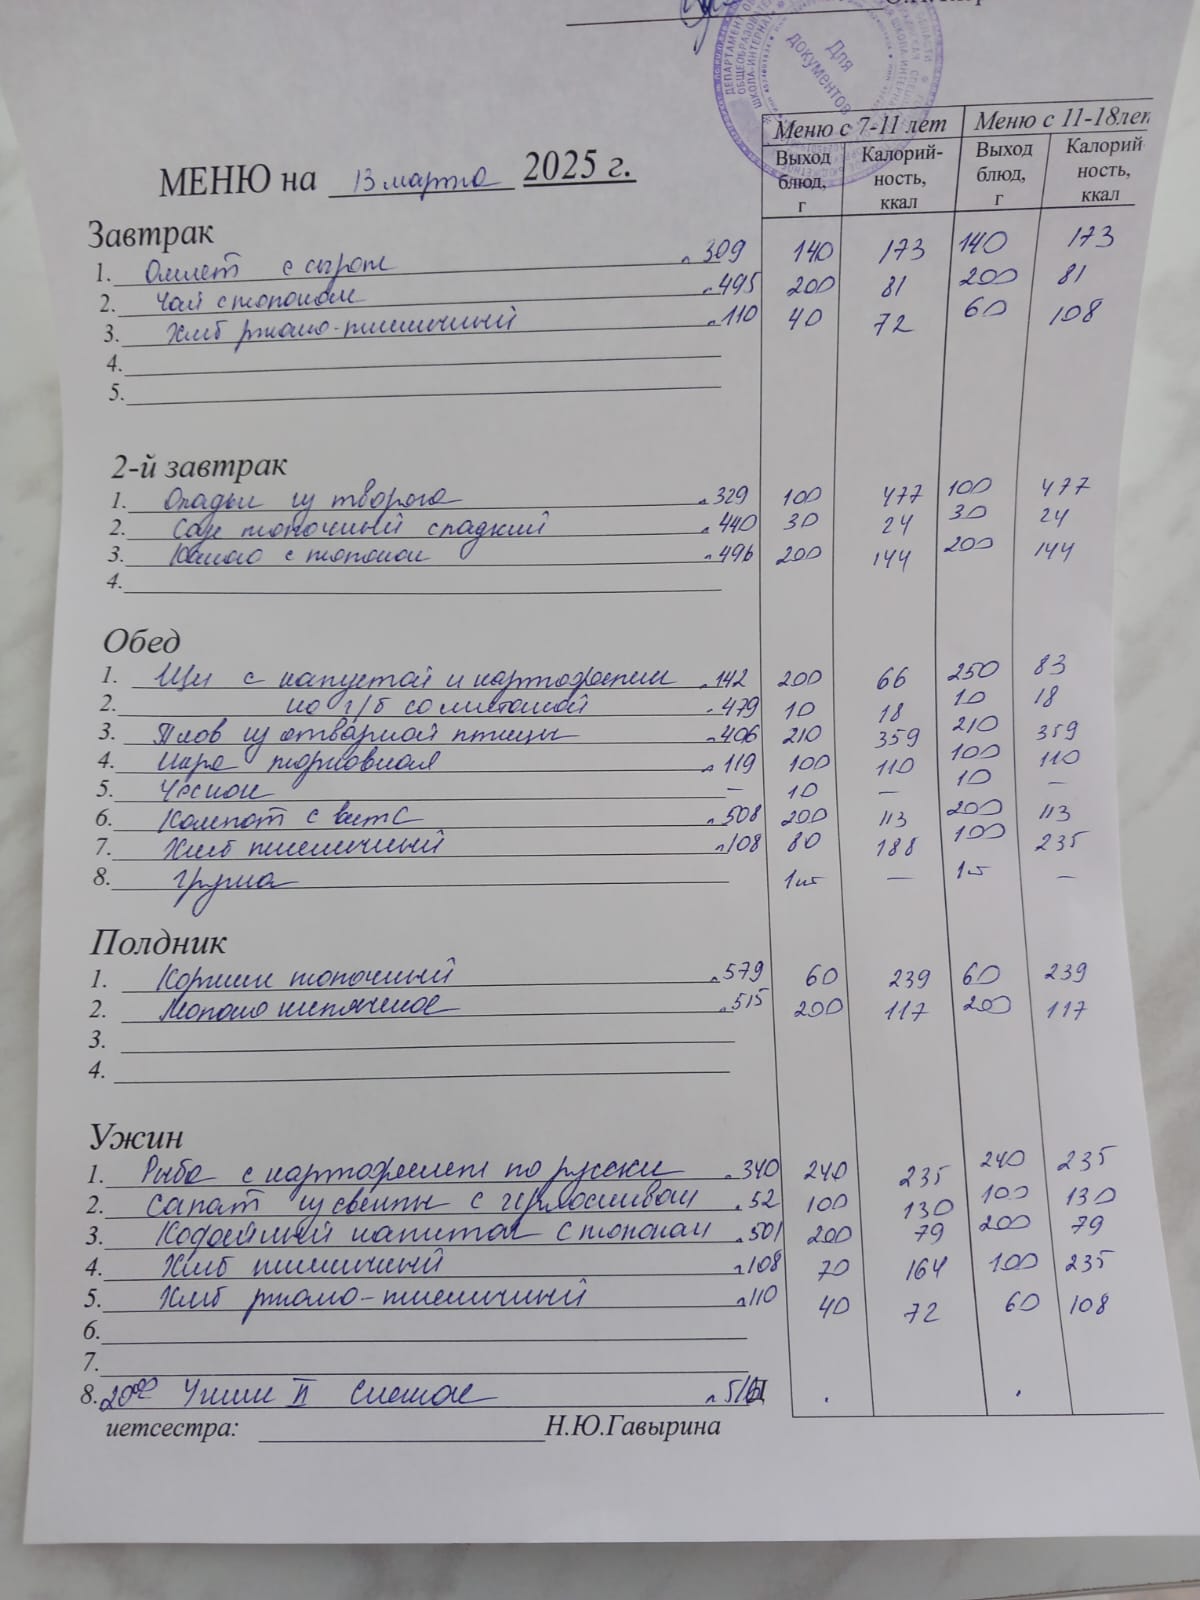 Для
документов
Меню с 7-11 лет Меню с 11-18лет
Выход блюд, г Калорий-ность, ккал Выход блюд, г Калорий ность, ккал
МЕНЮ на 13 марта 2025 г.
Завтрак
1. Омлет с сыром п. 309 140 173 140 173
2. Чай с молоком п. 495 200 81 200 81
3. Хлеб ржано-пшеничный п. 110 40 72 60 108
4.
5.
2-й завтрак
1. Оладьи из творога п. 329 100 477 100 477
2. Соус молочный сладкий п. 440 30 24 30 24
3. Какао с молоком п. 496 200 144 200 144
4.
Обед
1. Щи с капустой и картофелем п. 142 200 66 250 83
2. на к/б со сметаной п. 479 10 18 10 18
3. Плов из отварной птицы п. 406 210 359 210 359
4. Икра морковная п. 119 100 110 100 110
5. Чеснок – 10 – 10 –
6. Компот с вит С п. 508 200 113 200 113
7. Хлеб пшеничный п. 108 80 188 100 235
8. груша 1шт – 1шт –
Полдник
1. Коржик молочный п. 579 60 239 60 239
2. Молоко кипяченое п. 515 200 117 200 117
3.
4.
Ужин
1. Рыба с картофелем по русски п. 340 240 235 240 235
2. Салат из свеклы с черносливом п. 52 100 130 100 130
3. Кофейный напиток с молоком п. 501 200 79 200 79
4. Хлеб пшеничный п. 108 70 164 100 235
5. Хлеб ржано-пшеничный п. 110 40 72 60 108
6.
7.
8. 20⁰⁰ Ужин II Снежок
иетсестра: Н.Ю.Гавырина